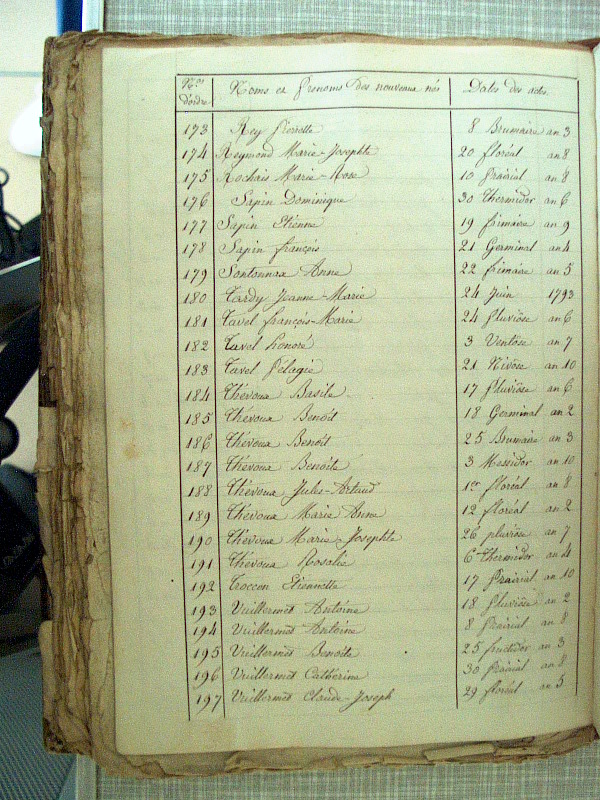 Nos d'ordre Noms et Prenoms des nouveaux nés Dates des actes.
173 Rey Pierrette 8 Brumaire an 3
174 Reymond Marie-Josephte 20 floréal an 8
175 Rochais Marie-Rose 10 Prairial an 8
176 Sapin Dominique 30 Thermidor an 6
177 Sapin Etienne 19 frimaire an 9
178 Sapin françois 21 Germinal an 4
179 Sontonnax Anne 22 frimaire an 5
180 Tardy Jeanne-Marie 24 Juin 1793
181 Tavel françois-Marie 24 Pluviôse an 6
182 Tavel honoré 3 Ventôse an 7
183 Tavel Pélagie 21 Nivôse an 10
184 Thévoux Basile 17 Pluviôse an 6
185 Thévoux Benoît 18 Germinal an 2
186 Thévoux Benoît 25 Brumaire an 3
187 Thévoux Benoîte 3 Messidor an 10
188 Thévoux Jules-Artaud 1er floréal an 8
189 Thévoux Marie Anne 12 floréal an 2
190 Thévoux Marie-Josephte 26 pluviôse an 7
191 Thévoux Rosalie 6 thermidor an 4
192 Troccon Etiennette 17 Prairial an 10
193 Vuillermet Antoine 18 Pluviôse an 2
194 Vuillermet Antoine 8 Prairial an 8
195 Vuillermet Benoîte 25 fructidor an 3
196 Vuillermet Catherine 30 Prairial an 8
197 Vuillermet Claude-Joseph 29 floréal an 5